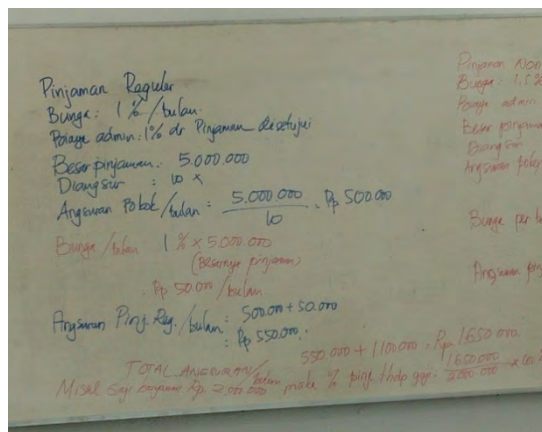 Pinjaman Reguler
Bunga: 1% / bulan.
Biaya admin: 1% dr Pinjaman disetujui
Besar pinjaman: 5.000.000
Diangsur : 10 x
Angsuran Pokok / bulan : 5.000.000 / 10 = Rp 500.000
Bunga / bulan 1% x 5.000.000
(Besarnya pinjaman)
: Rp 50.000 / bulan.
Angsuran Pinj. Reg. / bulan : 500.000 + 50.000
: Rp 550.000.
550.000 + 1.100.000 = Rp 1.650.000.
TOTAL ANGSURAN / bulan
Misal Gaji Rp. 2.000.000 maka % pinj thdp gaji = 1.650.000 / 2.000.000 x
Pinjaman Non
Bunga : 1,5%
Biaya admin
Besar pinjaman
Diangsur
Angsuran pokok
Bunga per
Angsuran